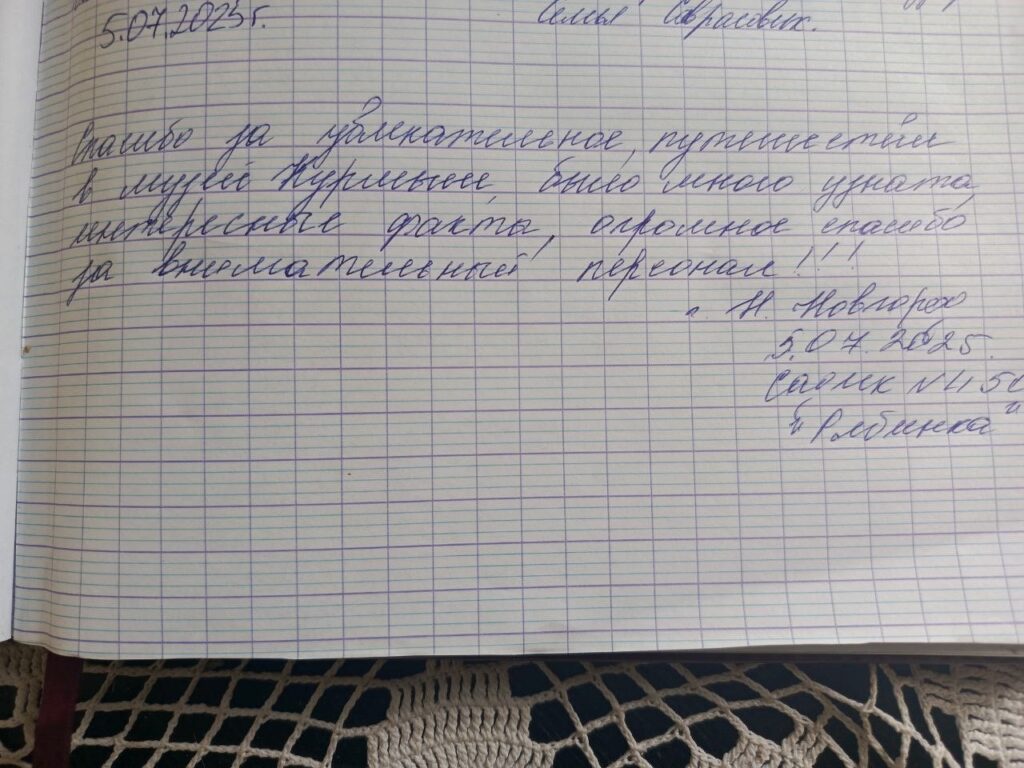 5.07.2025г. Семья
Спасибо за увлекательное, путешествие
в музей Курмыш, было много узната,
интересные факты, огромное спасибо
за внимательный персонал!!!
г. Н. Новгород
5.07.2025.
Садик №450
"Рябинка"